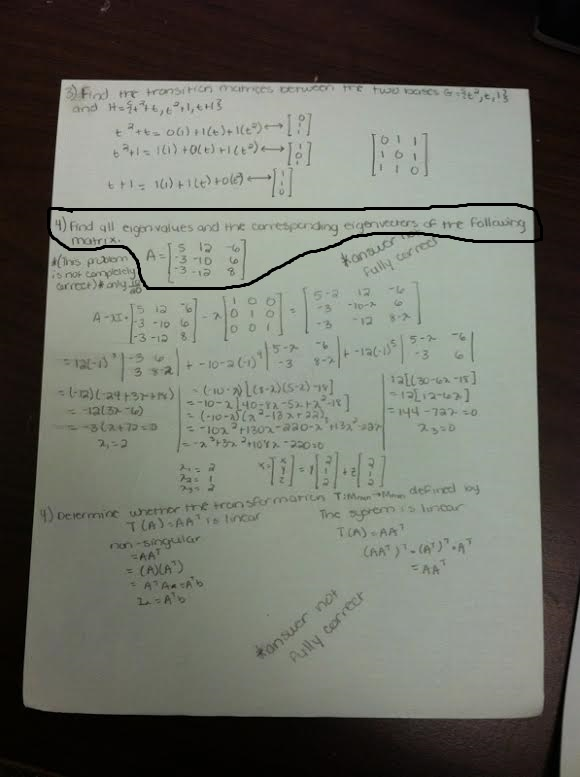 3) Find the transition matrices between the two bases G={t², t, 1}
and H={t²+t, t²+1, t+1}
t²+t = 0(1)+1(t)+1(t²) ↔ [0 1 1]
t²+1 = 1(1)+0(t)+1(t²) ↔ [1 0 1]
t+1 = 1(1)+1(t)+0(t²) ↔ [1 1 0]
[0 1 1
1 0 1
1 1 0]
4) Find all eigenvalues and the corresponding eigenvectors of the following
matrix.
*(This problem
is not completely
correct)* only
A = [5 12 -6
-3 -10 6
-3 -12 8]
*answer not
fully correct
A-λI = [5 12 -6
-3 -10 6
-3 -12 8] - λ [1 0 0
0 1 0
0 0 1] = [5-λ 12 -6
-3 -10-λ 6
-3 -12 8-λ]
= 12(-1)³ |-3 6
3 8-λ| + -10-λ(-1)⁴ |5-λ -6
-3 8-λ| + -12(-1)⁵ |5-λ -6
-3 6|
= (-12)(-24+3λ+18)
= -12(3λ-6)
= -3(λ+72=0
λ₁=2
= (-10-λ)[(8-λ)(5-λ)-18]
= -10-λ[40-8λ-5λ+λ²-18]
= (-10-λ)(λ²-13λ+22)
= -10λ²+130λ-220-λ³+13λ²-22λ
= -λ³+3λ²+108λ-220=0
12[(30-6λ-18]
= 12[12-6λ]
= 144-72λ=0
λ₃=0
λ₁ = 2
λ₂ = 1
λ₃ = 2
x = [x y z] = y[2 1 2] + z[2 1 2]
4) Determine whether the transformation T:Mmn→Mmn defined by
T(A) = AAᵀ is linear
The system is linear
non-singular
= AAᵀ
= (A)(Aᵀ)
= AᵀAx=Aᵀb
T(A) = AAᵀ
(AAᵀ)ᵀ = (Aᵀ)ᵀ · Aᵀ
= AAᵀ
*answer not
fully correct